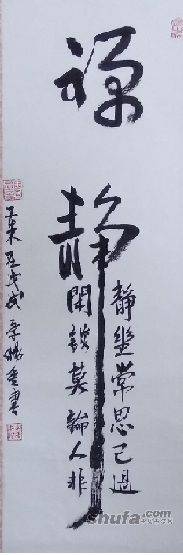 禅静
靜坐常思己過
閑談莫論人非
乙未
書
shufa.com